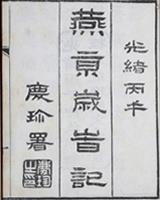 光緒丙午
燕亰歲旹記
慶珍署